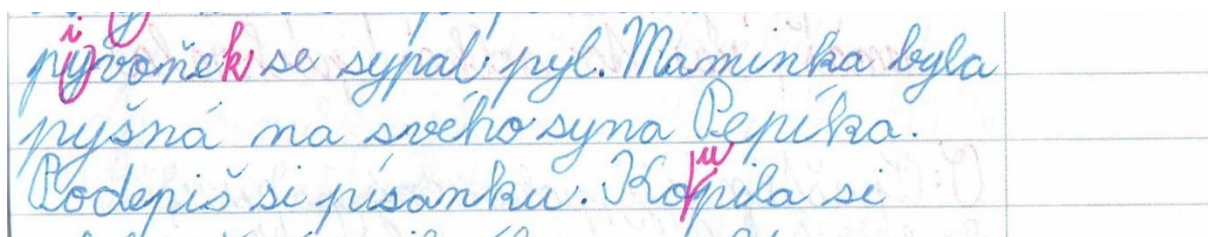 pyvoněk se sypal pyl. Maminka byla
pyšná na svého syna Pepíka.
Podepiš si písanku. Kopila si